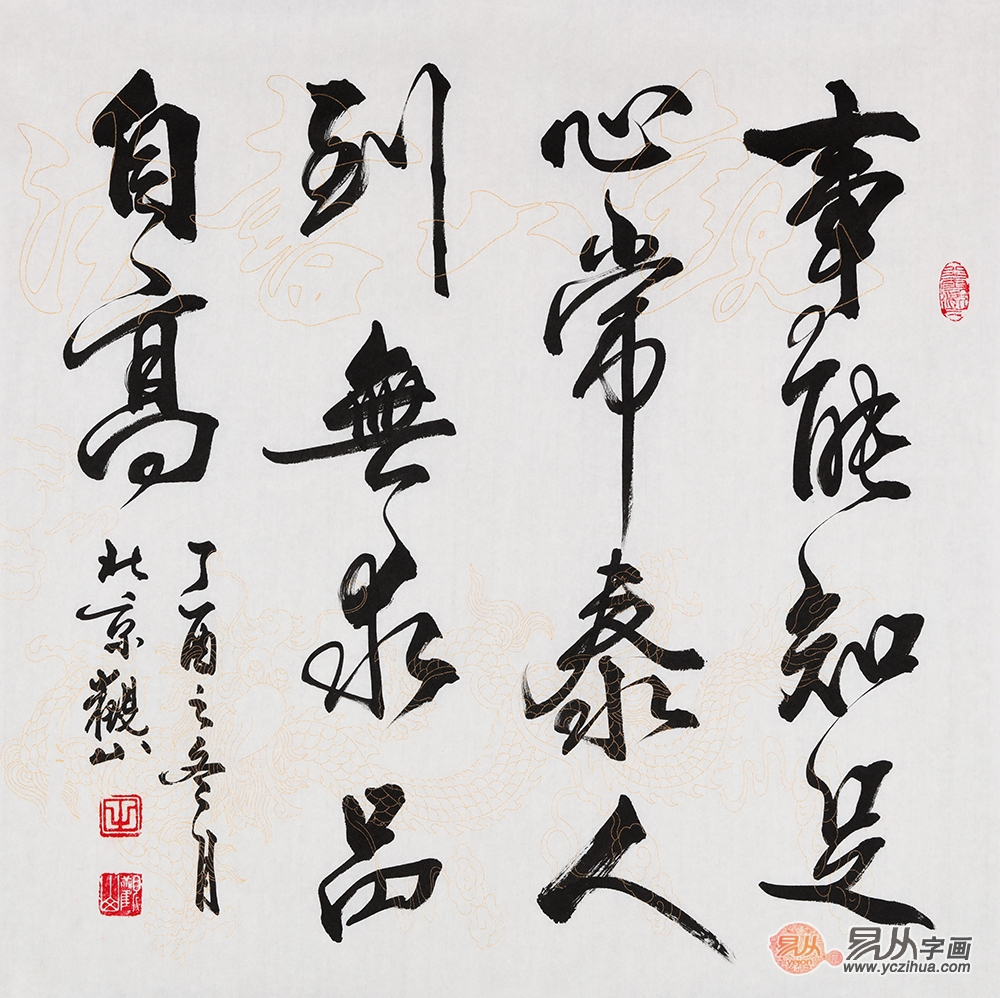 事能知足
心常泰人
到無求品
自高
丁酉之冬月
北京觀山
易从字画
yicyon
www.yczihua.com